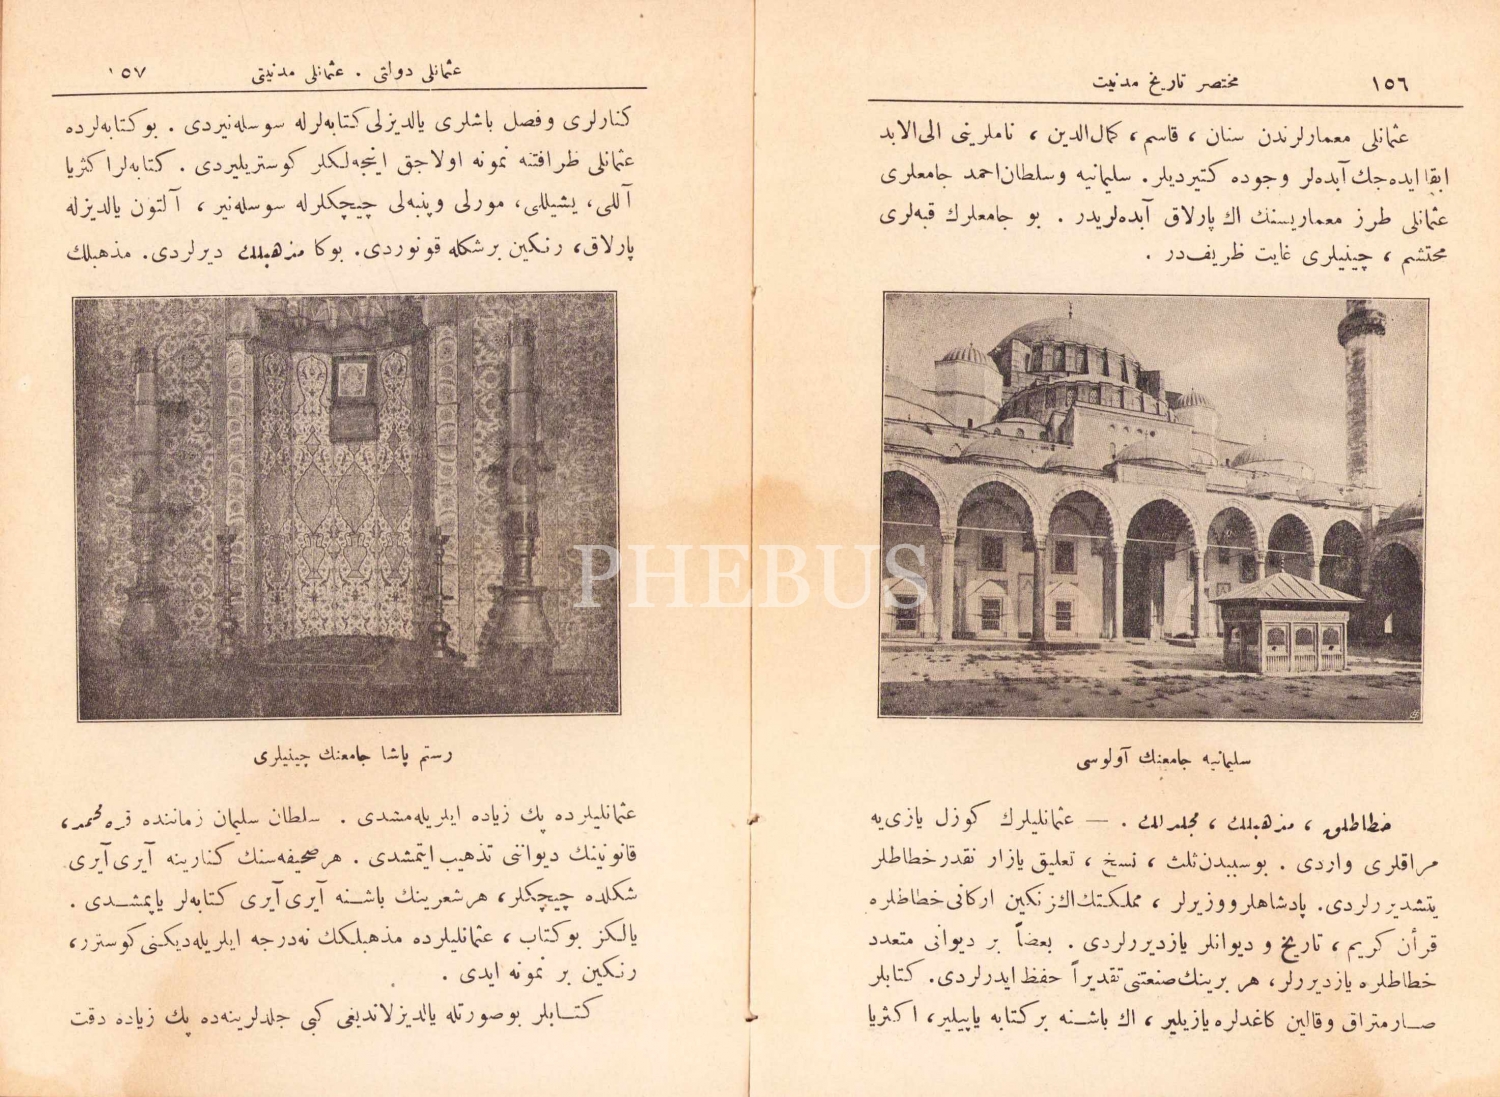 ١٥٦ مختصر تاريخ مدنيت
عثمانلى معمارلرندن سنان ، قاسم ، كمال‌الدين ، ناملرينى الى‌الابد
ابقا ايده‌جك آبده‌لر وجوده كتيرديلر. سليمانيه وسلطان‌احمد جامعلرى
عثمانلى طرز معماريسنك اك پارلاق آبده‌لريدر . بو جامعلرك قبه‌لرى
محتشم ، چينيلرى غايت ظريف‌در .
سليمانيه جامعنك آولوسى
خطاطلق ، مذهبلك ، مجلدلك . — عثمانليلرك كوزل يازى‌يه
مراقلرى واردى . بوسببدن ثلث ، نسخ ، تعليق يازار نقدر خطاطلر
يتشديررلردى. پادشاهلر ووزيرلر ، مملكتك اك زنكين اركانى خطاطلره
قرأن كريم ، تاريخ و ديوانلر يازديررلردى . بعضاً بر ديوانى متعدد
خطاطلره يازديررلر، هر برينك صنعتنى تقديراً حفظ ايدرلردى. كتابلر
صــارمتراق وقالين كاغدلره يازيلير ، اك باشــنه بركتابه ياپيلير، اكثريا
عثمانلى دولتى . عثمانلى مدنيتى ١٥٧
كنارلرى وفصل باشلرى يالديزلى كتابه‌لرله سوسله‌نيردى . بوكتابه‌لرده
عثمانلى ظرافتنه نمونه اولاجق اينجه‌لكلر كوستريليردى . كتابه‌لر اكثريا
آللى، يشيللى، مورلى وپنبه‌لى چيچكلرله سوسله‌نير ، آلتون يالديزله
پارلاق، رنكين برشكله قونوردى. بوكا مذهبلك ديرلردى. مذهبلك
رستم پاشا جامعنك چينيلرى
عثمانليلرده پك زياده ايلريله‌مشدى . سلطان سليمان زماننده قره محمد،
قانونينك ديواننى تذهيب ايتمشدى . هرصحيفه‌سنك كنارينه آيرى‌آيرى
شكلده چيچكلر، هرشعرينك باشــنه آيرى‌آيرى كتابه‌لر ياپمشــدى .
يالكز بوكتاب ، عثمانليلرده مذهبلكك نه‌درجه ايلريله‌ديكــنى كوسترر،
رنكين بر نمونه ايدى .
كتــابلر بوصورتله يالديزلانديغى كبى جلدلرينه‌ده پك زياده دقت
PHEBUS